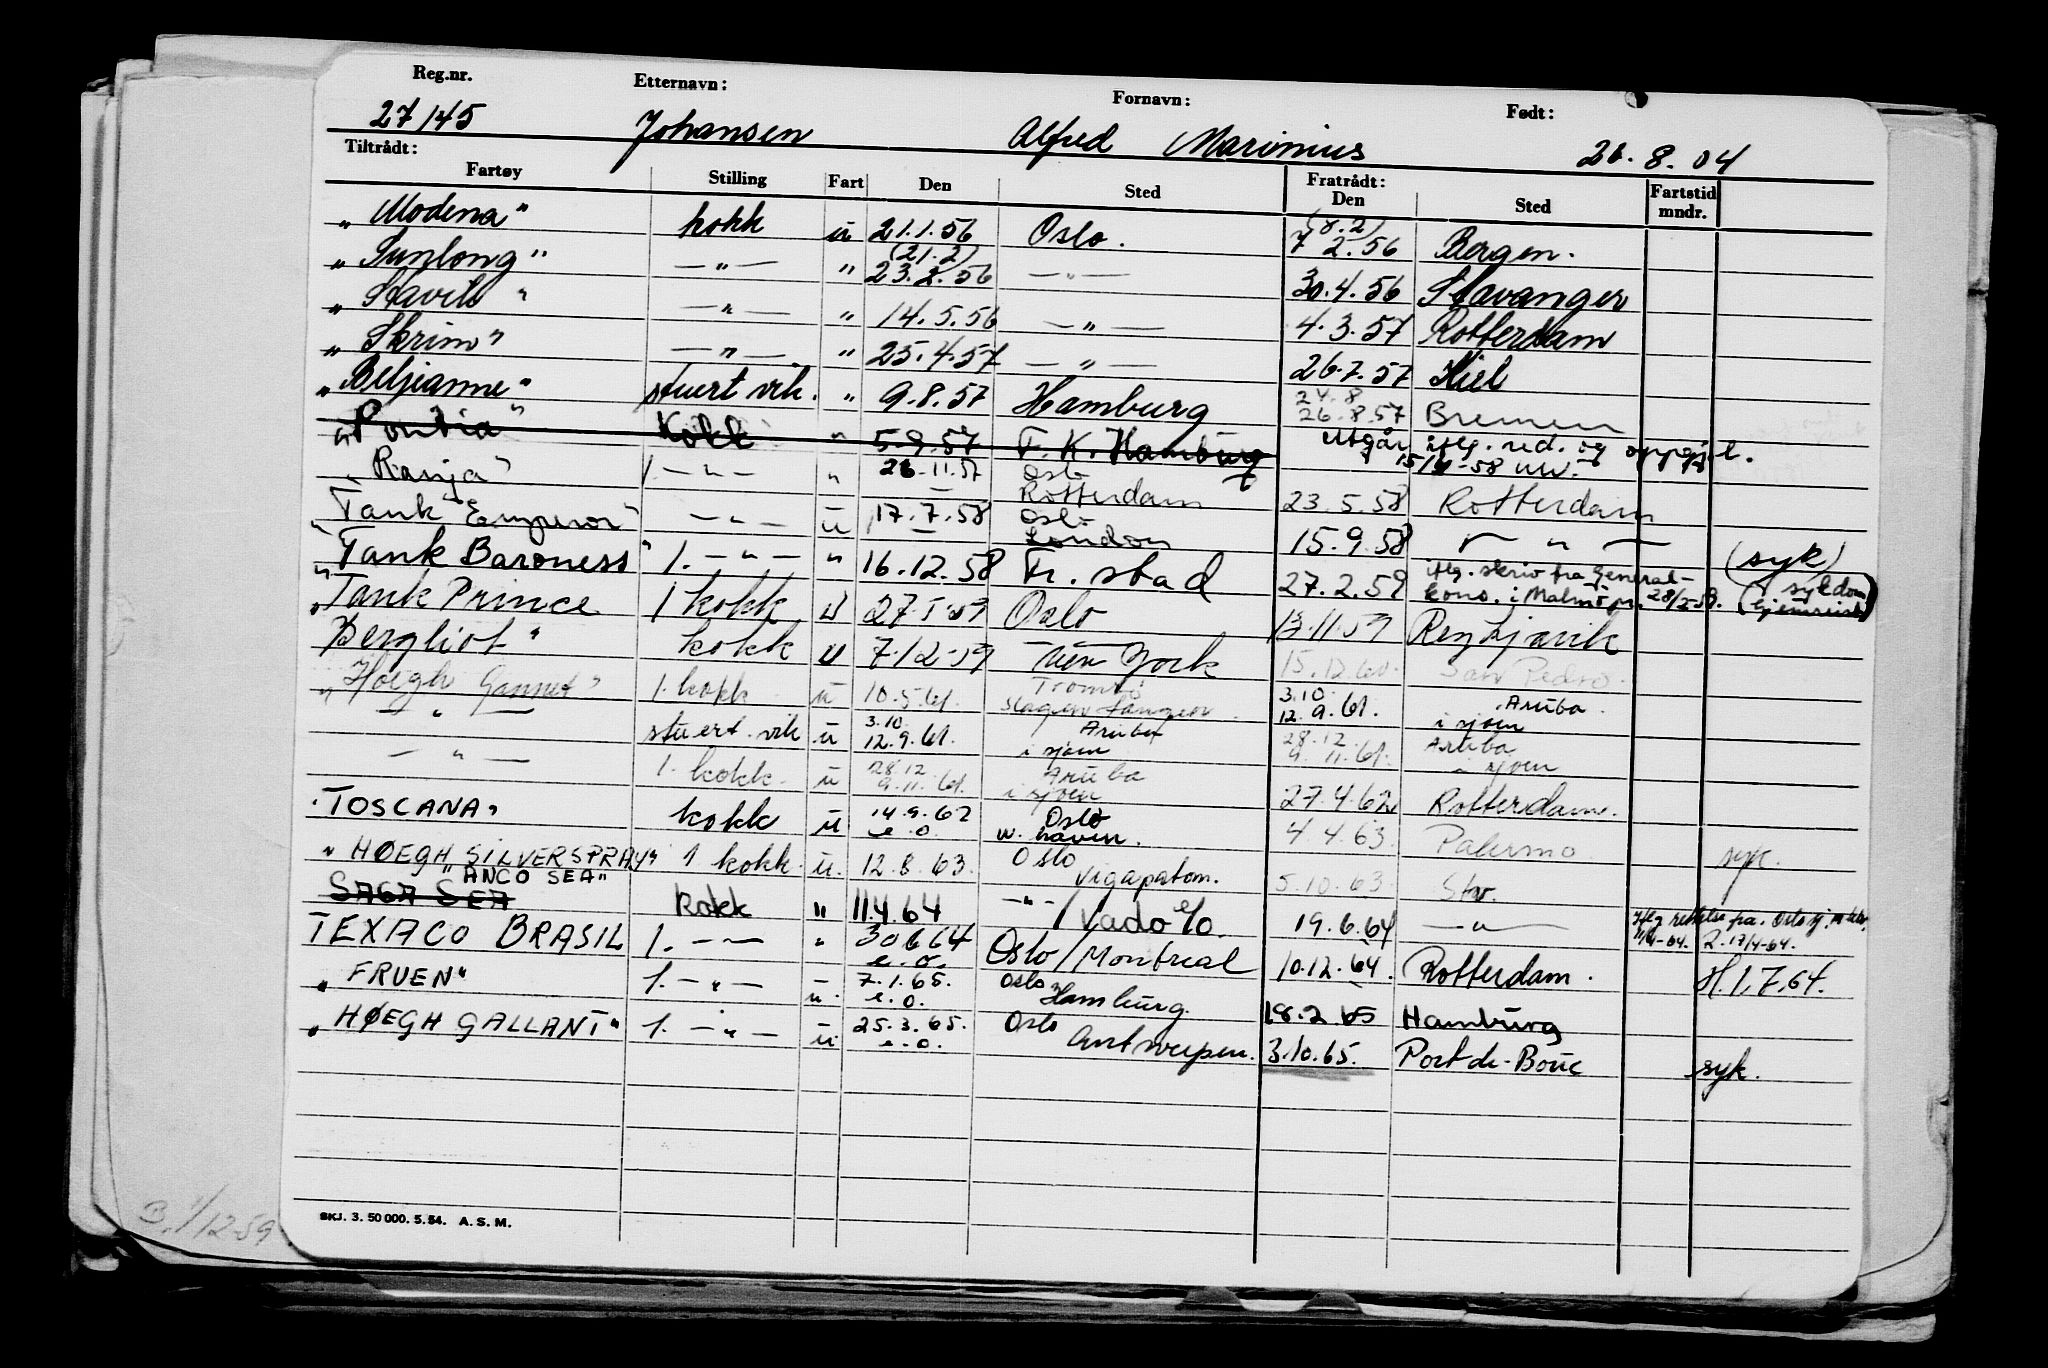 Reg.nr. Etternavn: Fornavn: Født:
27145 Johansen Alfred Marinius 26.8.04
Tiltrådt: Fratrådt:
Fartøy Stilling Fart Den Sted Den Sted Fartstid mndr.
"Modena" kokk u 21.1.56 Oslo. (8.2) 7 2.56 Bergen.
"Sunlong" — " — " (21.2) 23.2.56 — " — 30.4.56 Stavanger
"Stavik" — " — " 14.5.56 — " — 4.3.57 Rotterdam
"Skrim" — " — " 25.4.57 — " — 26.7.57 Kiel
"Beljeanne" stuert vik. " 9.8.57 Hamburg 24.8 26.8.57 Bremen
"Pontia" Kokk " 5.9.57 F. K. Hamburg Utgår iflg. red. og oppgj.
"Ranja" 1 — " — " 26.11.57 Oslo Rotterdam 23.5.58 Rotterdam
"Tank Emperor" — " — u 17.7.58 Oslo London 15.9.58 — " — (syk)
"Tank Baroness" 1. — " — " 16.12.58 Fr. stad 27.2.59 iflg. skriv fra General-kons. i Malmö (sykdom hjemreist)
"Tank Prince 1 kokk U 27.5.59 Oslo 13.11.59 Reykjavik
"Bergliot" kokk U 7.12.59 New York 15.12.60. San Pedro.
"Høegh Gannet" 1. kokk u 10.5.61. Tromsø Slagentangen. 3.10. 12.9.61. Aruba i sjøen
— " — stuert. vik u 3.10. 12.9.61. Aruba i sjøen 28.12. 9.11.61. Aruba i sjøen
— " — 1. kokk. u 28.12. 9.11.61. Aruba i sjøen 27.4.62 Rotterdam.
"TOSCANA" kokk u 14.9.62 e.o. Oslo W. haven. 4.4.63 Palermo syk.
"HØEGH SILVERSPRAY" 1 kokk. u. 12.8.63. Oslo Vigapatam. 5.10.63 Stv.
"ANCO SEA"
SAGA SEA kokk " 11.4.64 — " — / Vado e/o. 19.6.64 — " —
TEXACO BRASIL 1. — " — " 30.6.64 e.o. Oslo / Montreal 10.12.64. Rotterdam. H.1.7.64.
"FRUEN" 1. — " — u. 7.1.65. e.o. Oslo Hamburg. 18.2.65 Hamburg
"HØEGH GALLANT" 1. — " — u. 25.3.65. e.o. Oslo Antwerpen. 3.10.65. Port de-Bouc syk.
SKJ. 3. 50 000. 5. 54. A. S. M.
B. 1/12-59